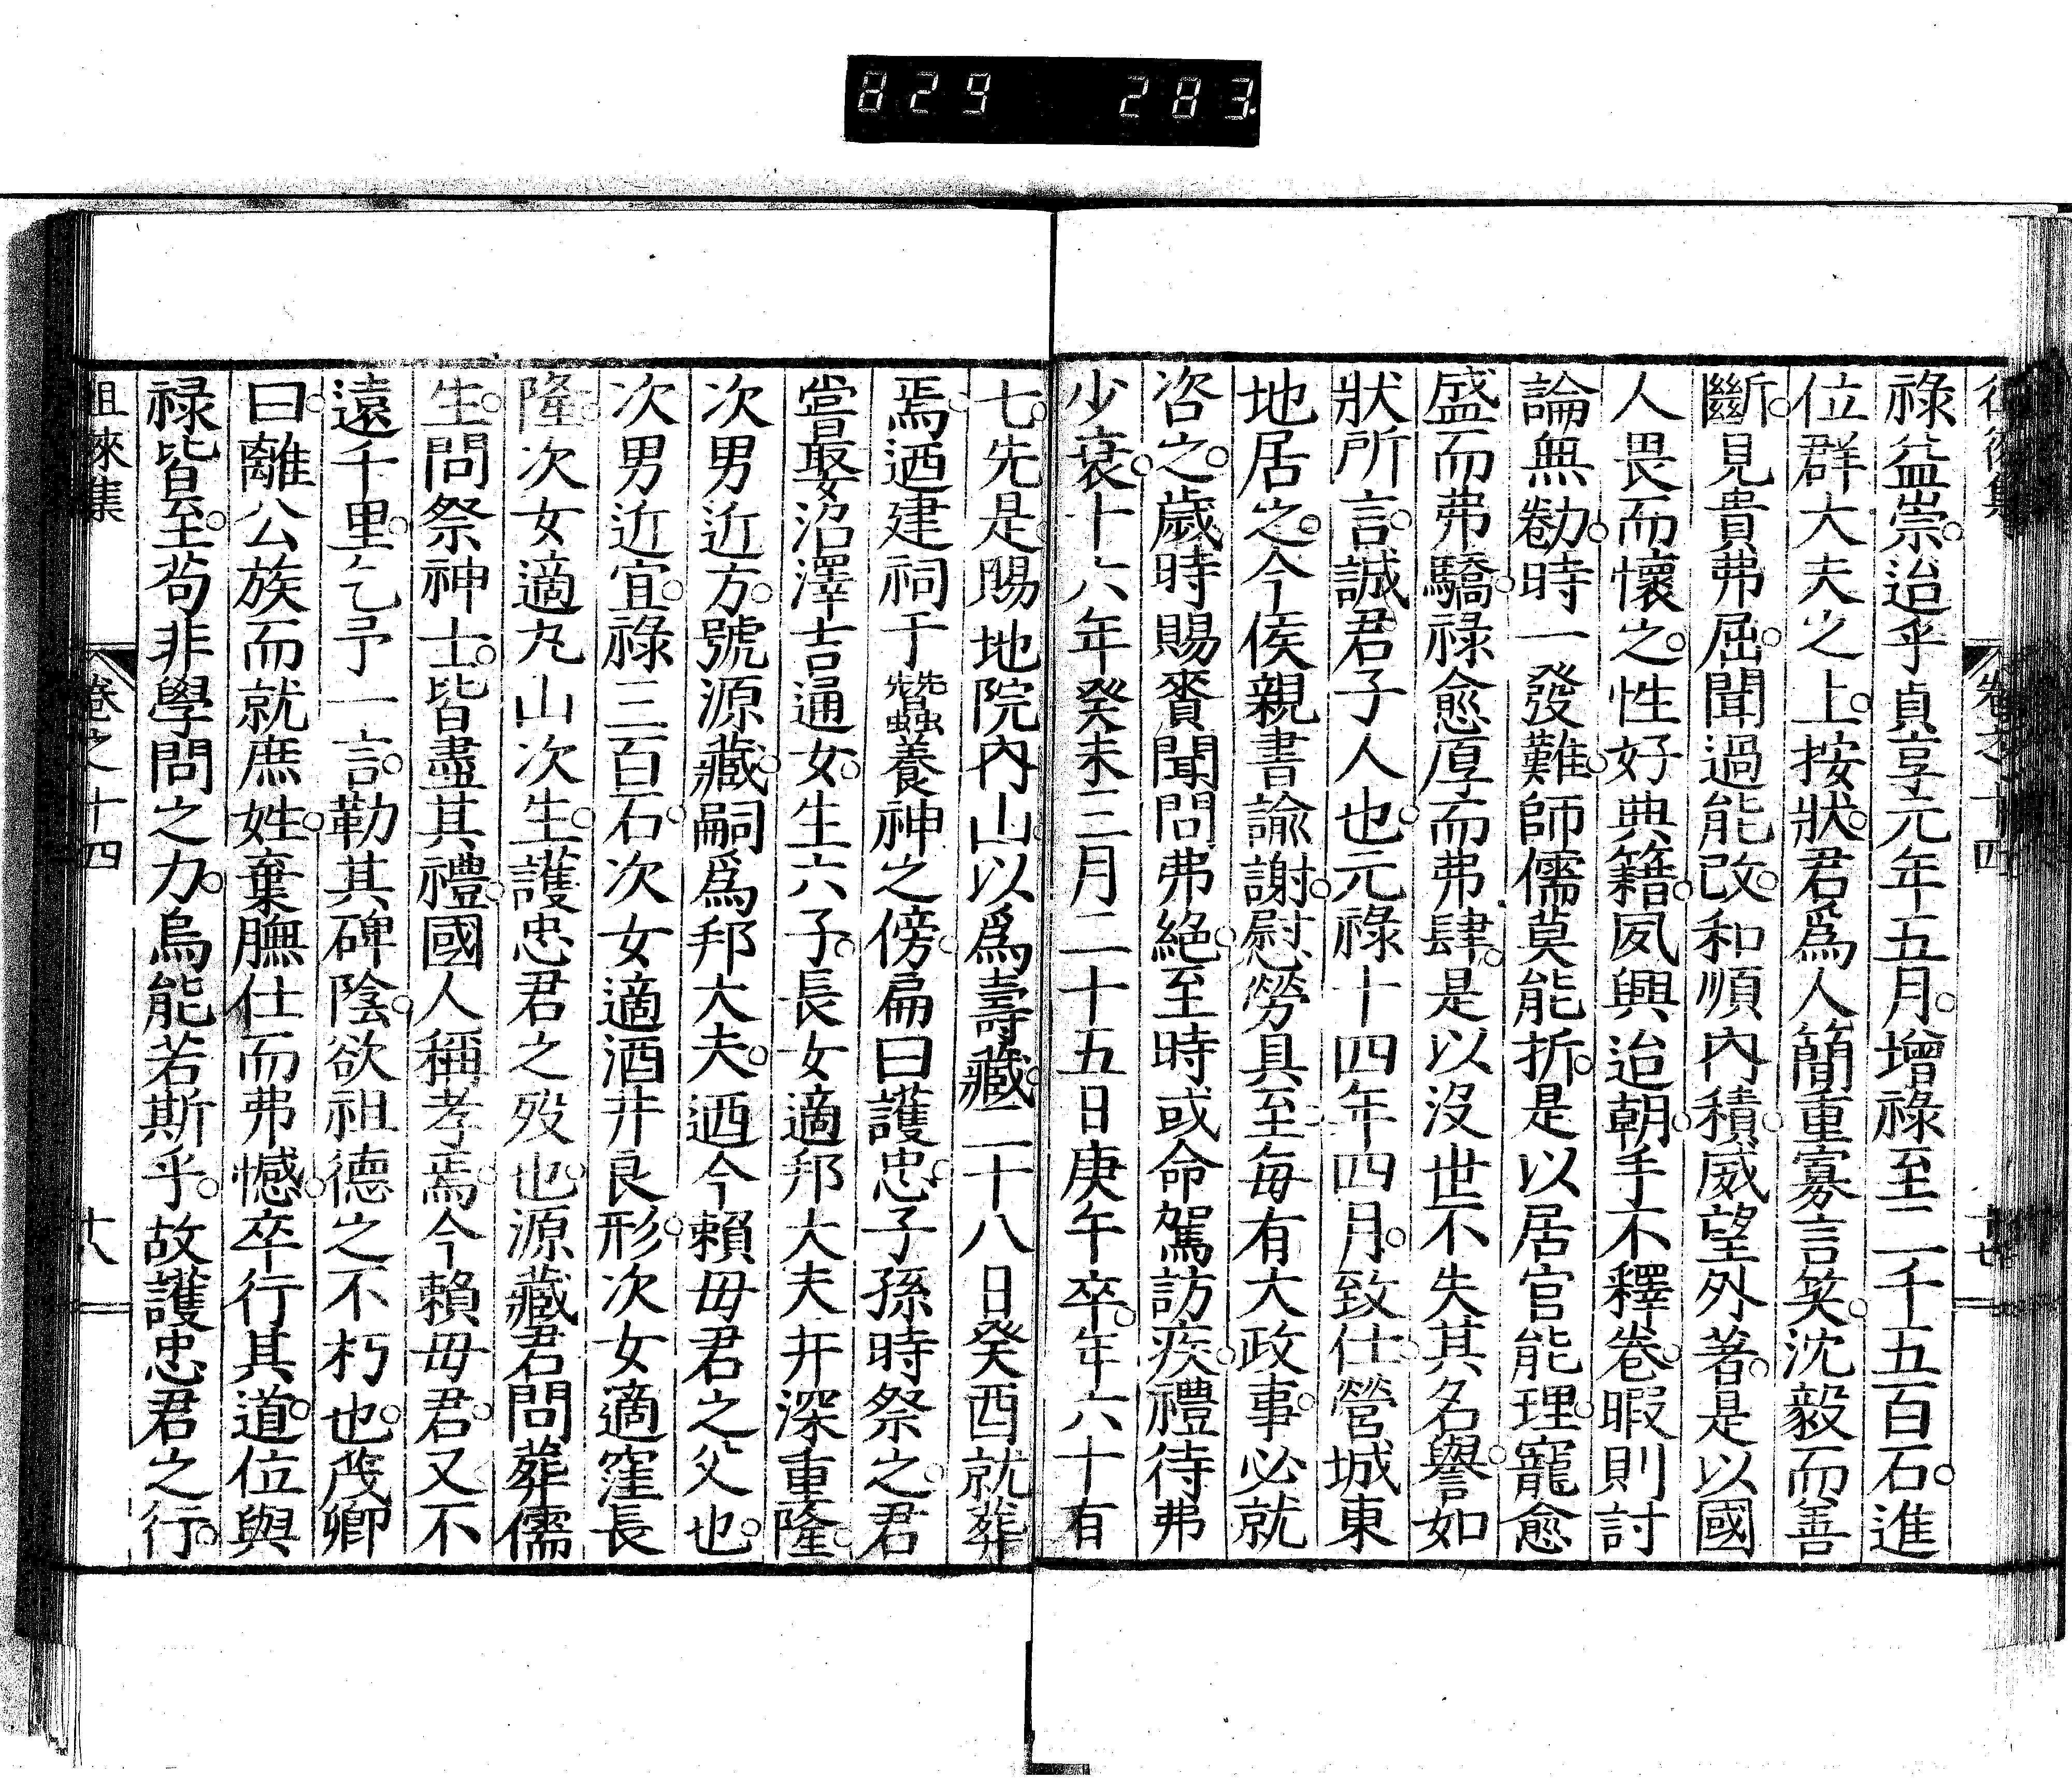 829 283
祿益崇。迨乎貞享元年五月。增祿至二千五百石。進
位群大夫之上。按狀。君爲人簡重寡言笑。沈毅而善
斷。見貴弗屈。聞過能改。和順內積。威望外著。是以國
人畏而懷之。性好典籍。夙興迨朝。手不釋卷。暇則討
論無勌。時一發難。師儒莫能折。是以居官能理。寵愈
盛而弗驕。祿愈厚而弗肆。是以沒世不失其名譽。如
狀所言。誠君子人也。元祿十四年四月。致仕。營城東
地居之。今侯親書諭謝。慰勞具至。每有大政事。必就
咨之。歲時賜賚。聞問弗絕。至時或命駕訪疾。禮待弗
少衰。十六年癸未三月二十五日庚午卒。年六十有
七。先是。賜地院內山。以爲壽藏。二十八日癸酉就葬
焉。迺建祠于蠶養神之傍。扁曰護忠。子孫時祭之。君
嘗娶沼澤吉通女。生六子。長女適邦大夫井深重隆。
次男近方。號源藏。嗣爲邦大夫。迺今賴母君之父也。
次男近宜。祿三百石。次女適酒井良形。次女適窪長
隆。次女適丸山次生。護忠君之歿也。源藏君問葬儒
生。問祭神士。皆盡其禮。國人稱孝焉。今賴母君。又不
遠千里。乞予一言。勒其碑陰。欲祖德之不朽也。茂卿
曰。離公族而就庶姓。棄膴仕而弗憾。卒行其道。位與
祿皆至。苟非學問之力。烏能若斯乎。故護忠君之行。
徂徠集 卷之十四 十八